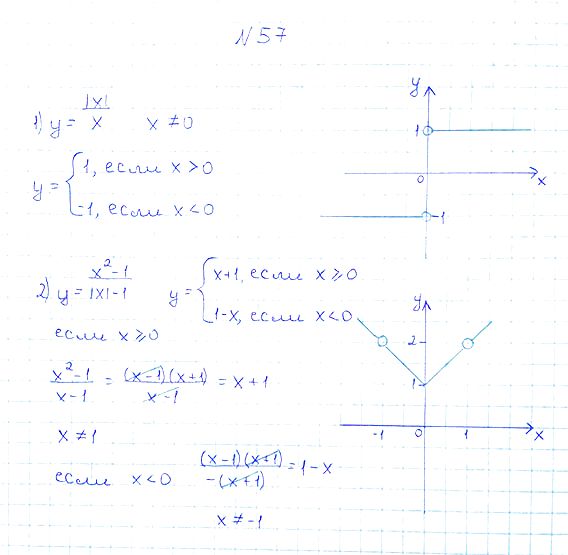 N 57
1) y = |x| / x   x ≠ 0
y = { 1, если x > 0
-1, если x < 0
y
1
0
x
-1
2) y = x² - 1 / |x| - 1   y = { x+1, если x ⩾ 0
1-x, если x < 0
если x ⩾ 0
x² - 1 / x - 1 = (x-1)(x+1) / x-1 = x + 1
x ≠ 1
если x < 0   (x-1)(x+1) / -(x+1) = 1 - x
x ≠ -1
y
2
1
-1 0 1 x